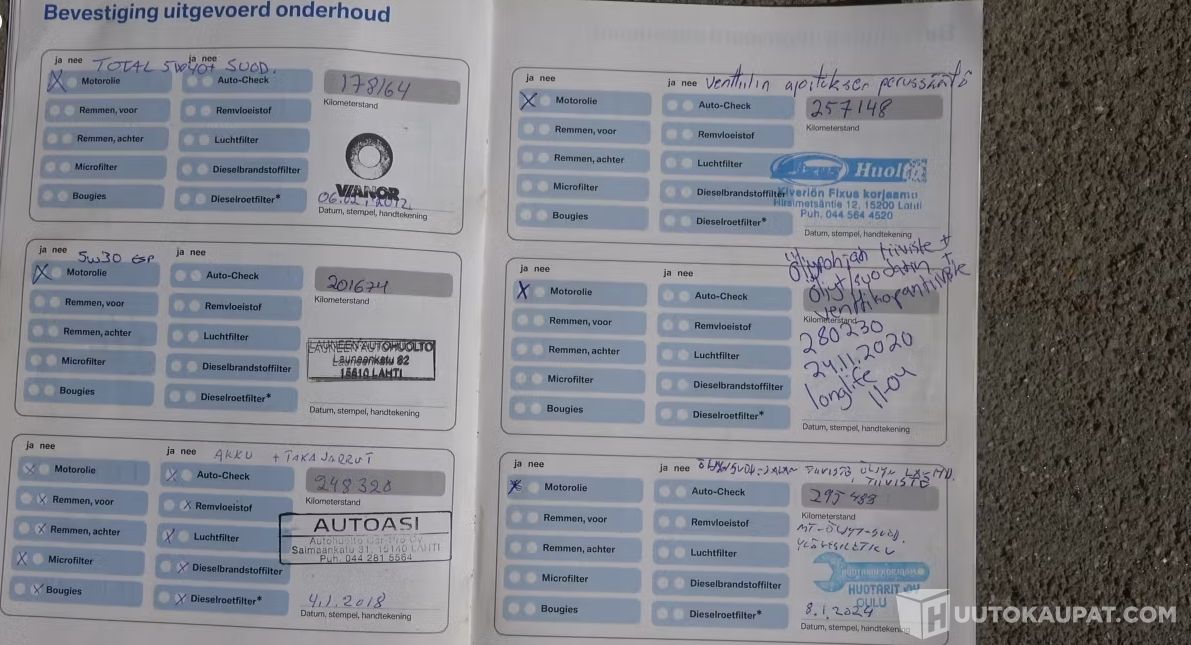 Bevestiging uitgevoerd onderhoud
ja nee
ja nee
TOTAL 5W40+ SUOD.
Motorolie
Auto-Check
178164
Kilometerstand
Remmen, voor
Remvloeistof
Remmen, achter
Luchtfilter
Microfilter
Dieselbrandstoffilter
VIANOR
Bougies
Dieselroetfilter*
06.02.2012
Datum, stempel, handtekening
ja nee
ja nee
5W30 GSP
Motorolie
Auto-Check
201674
Kilometerstand
Remmen, voor
Remvloeistof
Remmen, achter
Luchtfilter
LAUNEEN AUTOHUOLTO
Launeenkatu 82
15610 LAHTI
Microfilter
Dieselbrandstoffilter
Bougies
Dieselroetfilter*
Datum, stempel, handtekening
ja nee
ja nee
AKKU + TAKAJARRUT
Motorolie
Auto-Check
248320
Kilometerstand
Remmen, voor
Remvloeistof
AUTOASI
Autohuolto Car-Pro Oy
Saimaankatu 31, 15140 LAHTI
Puh. 044 281 5564
Remmen, achter
Luchtfilter
Microfilter
Dieselbrandstoffilter
Bougies
Dieselroetfilter*
4.1.2018
Datum, stempel, handtekening
ja nee
ja nee
Venttiilin apitikser perussäätö
Motorolie
Auto-Check
257148
Kilometerstand
Remmen, voor
Remvloeistof
Remmen, achter
Luchtfilter
Fixus Huolto
Kiveriön Fixus korjaamo
Hirsimetsäntie 12, 15200 Lahti
Puh. 044 564 4520
Microfilter
Dieselbrandstoffilter
Bougies
Dieselroetfilter*
Datum, stempel, handtekening
ja nee
ja nee
Öljypohjan tiiviste +
öljyt/suodatin +
venttikopantiiviste
Motorolie
Auto-Check
Kilometerstand
280230
24.11.2020
longlife
11-04
Remmen, voor
Remvloeistof
Remmen, achter
Luchtfilter
Microfilter
Dieselbrandstoffilter
Bougies
Dieselroetfilter*
Datum, stempel, handtekening
ja nee
ja nee
TIIVISTE
TIIVISTE
Motorolie
Auto-Check
295488
Kilometerstand
Remmen, voor
Remvloeistof
MT-ÖLJYT-SUOD.
Remmen, achter
Luchtfilter
Microfilter
Dieselbrandstoffilter
HUOTARIT OY
OULU
Bougies
Dieselroetfilter*
8.1.2024
Datum, stempel, handtekening
HUUTOKAUPAT.COM